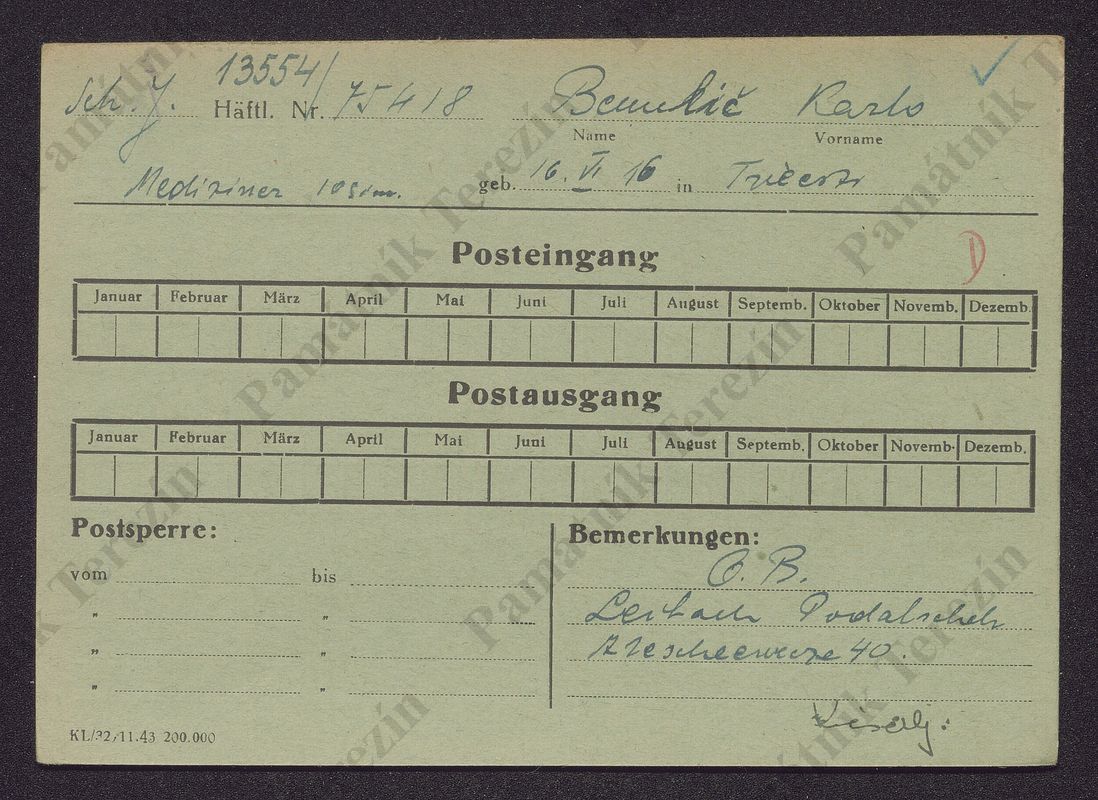 Sch. J. 13554/
Häftl. Nr. 75418 Karlo
Name Vorname
Mediziner geb. 16. VI 16 in
Posteingang
D
Januar Februar März April Mai Juni Juli August Septemb. Oktober Novemb. Dezemb.
Postausgang
Januar Februar März April Mai Juni Juli August Septemb. Oktober Novemb. Dezemb.
Postsperre: Bemerkungen:
O. B.
vom bis
Leibach
" "
40.
" "
" "
KL/32/11.43 200.000
Památník Terezín